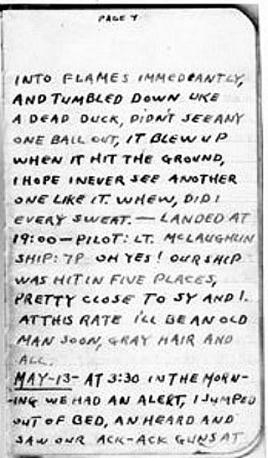 PAGE 7
INTO FLAMES IMMEDEANTLY,
AND TUMBLED DOWN LIKE
A DEAD DUCK, DIDN'T SEE ANY
ONE BAIL OUT, IT BLEW UP
WHEN IT HIT THE GROUND,
I HOPE I NEVER SEE ANOTHER
ONE LIKE IT. WHEW, DID I
EVERY SWEAT. — LANDED AT
19:00 — PILOT: LT. MCLAUGHLIN
SHIP: 7P OH YES! OUR SHIP
WAS HIT IN FIVE PLACES,
PRETTY CLOSE TO SY AND I.
AT THIS RATE I'LL BE AN OLD
MAN SOON, GRAY HAIR AND
ALL.
MAY-13- AT 3:30 IN THE MORN-
-ING WE HAD AN ALERT, I JUMPED
OUT OF BED, AN HEARD AND
SAW OUR ACK-ACK GUNS AT